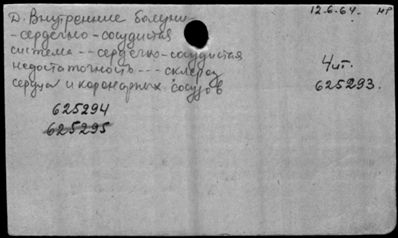 Д. Внутренние болезни-
12.6.64. МР
-сердечно-сосудистая
система--сердечно-сосудистая
недостаточность---склероз
4 шт.
сердца и коронарных сосудов
625293.
625294
625295